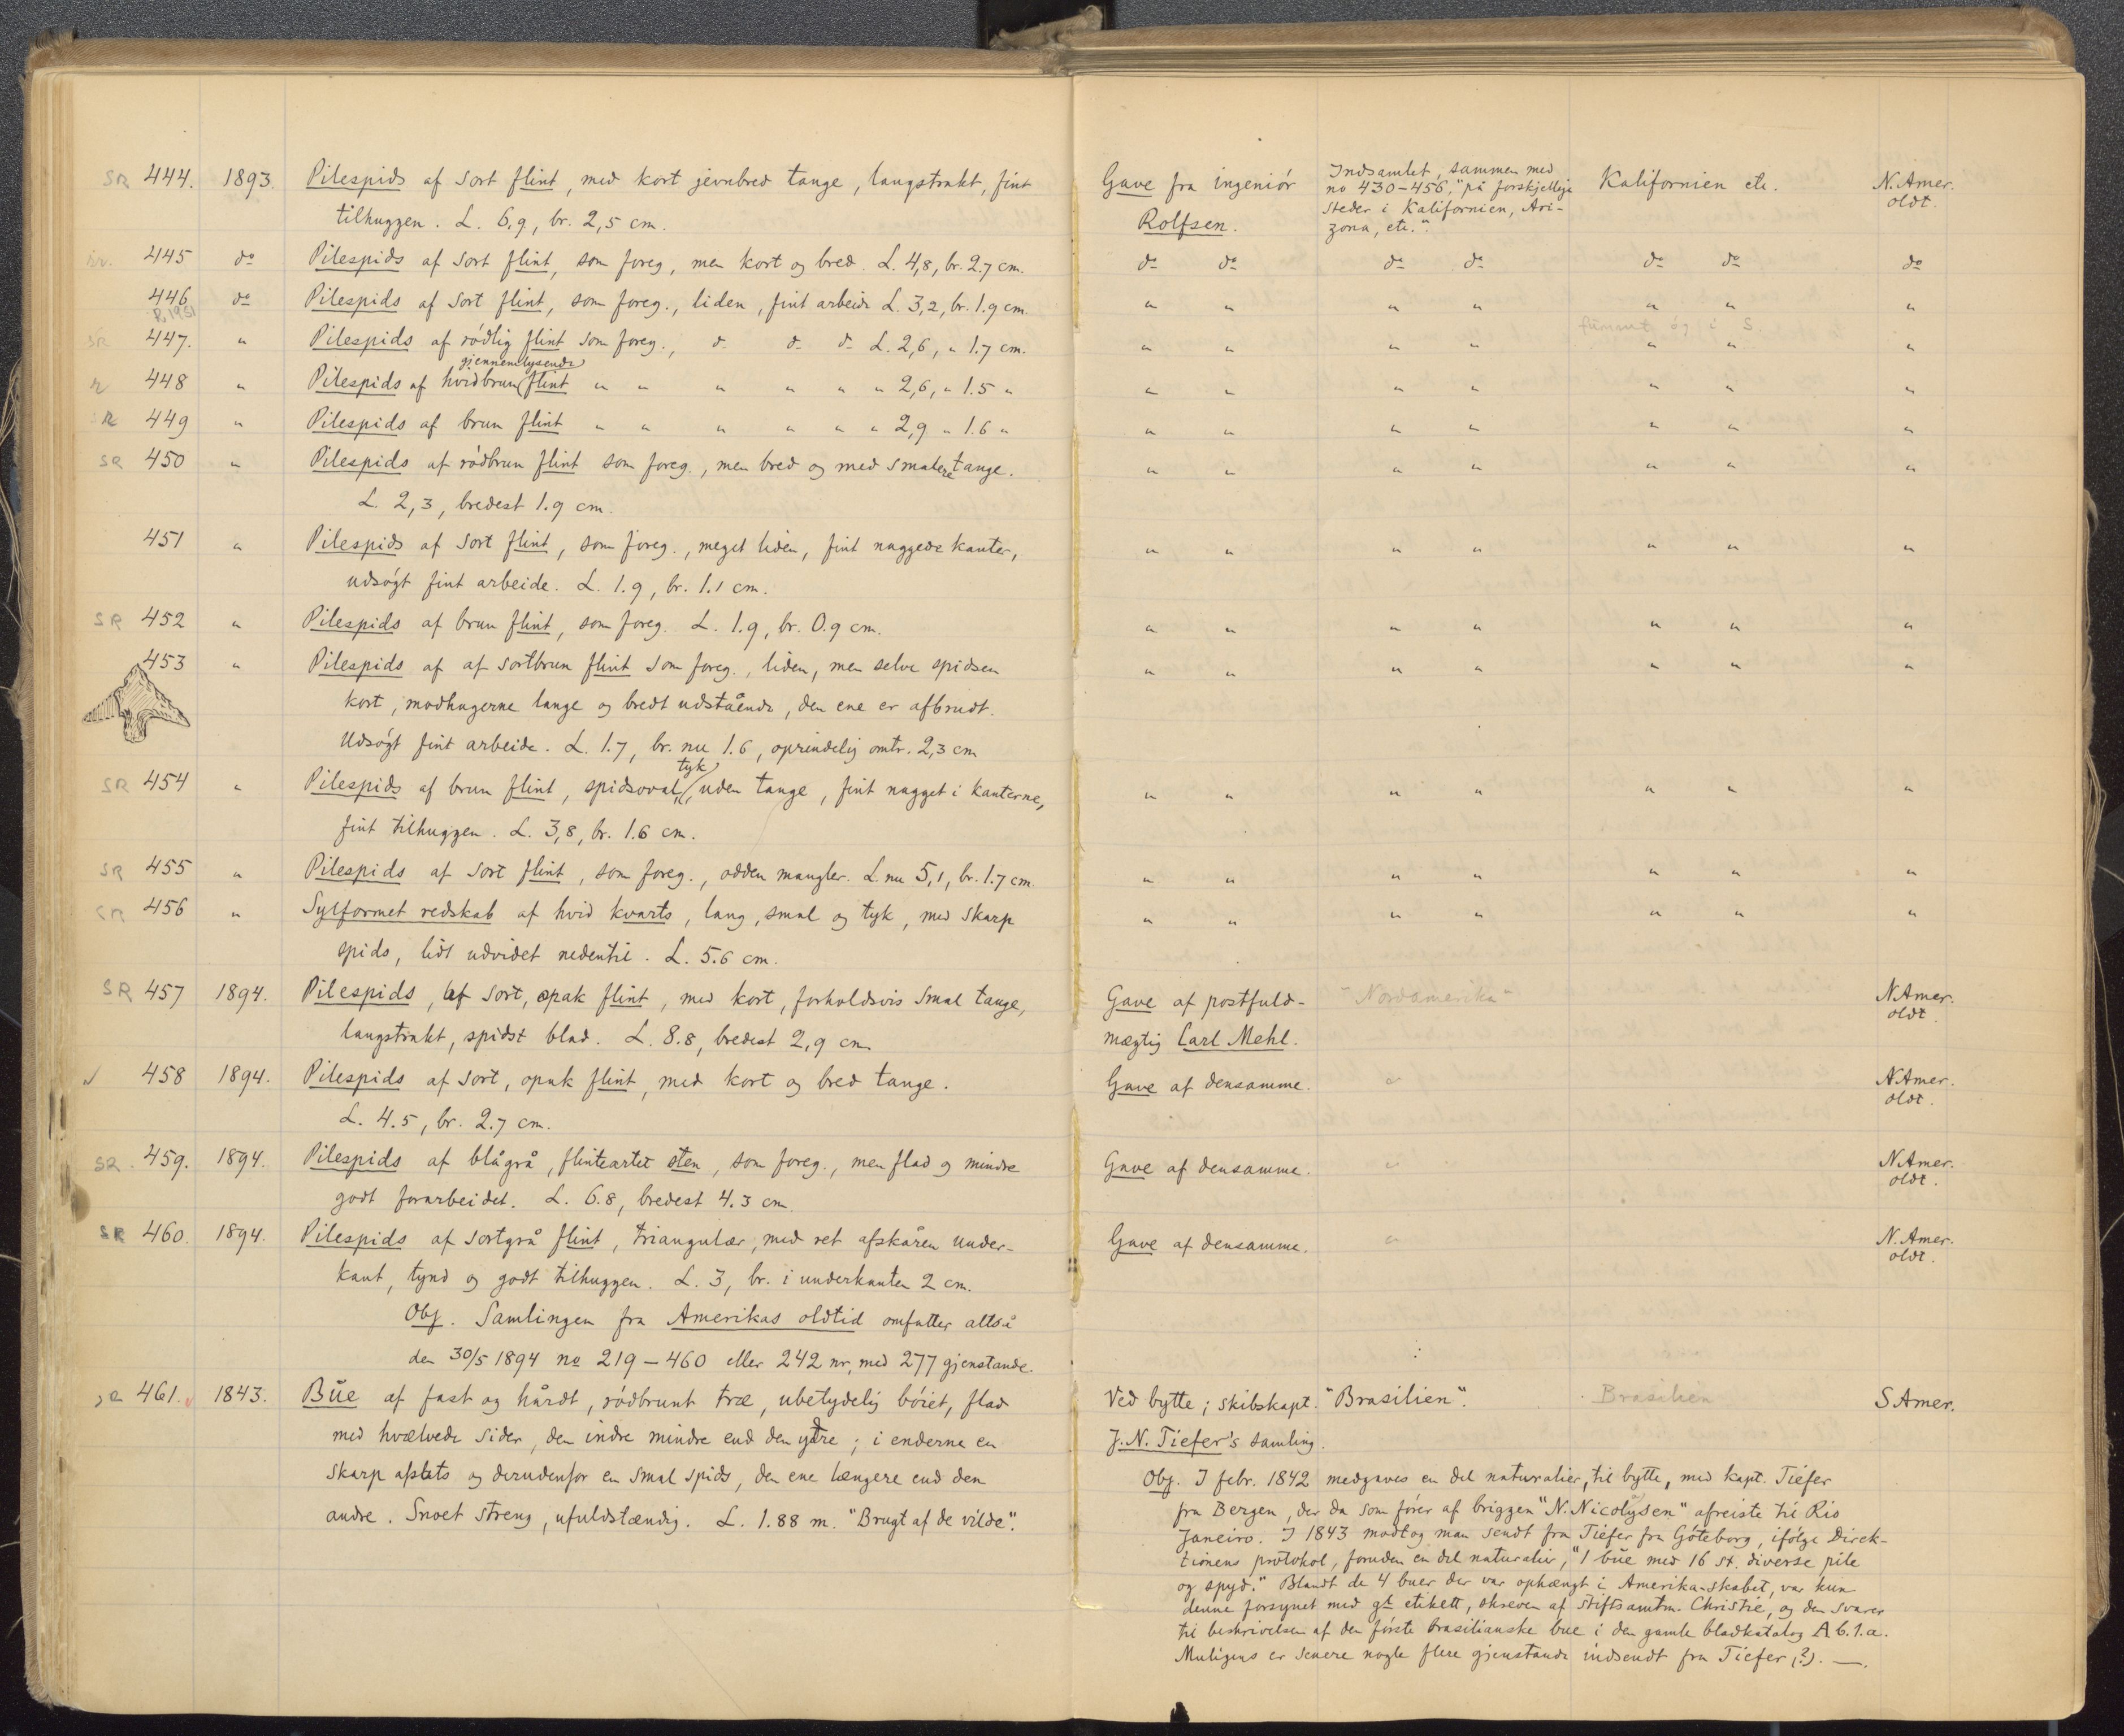 SR 444. 1893. Pilespids af sort flint, med kort jevnbred tange, langstrakt, fint
tilhuggen. L. 6,9, br. 2,5 cm.
445 do Pilespids af sort flint, som foreg., men kort og bred. L. 4,8, br. 2.7 cm.
446 do Pilespids af sort flint, som foreg., liden, fint arbeide L. 3,2, br. 1.9 cm.
R. 1951
SR 447. " Pilespids af rödlig flint som foreg., do do do L. 2,6, " 1.7 cm.
gjennemlysende
448 " Pilespids af hvidbrun flint " " " " " " 2,6, " 1.5 "
449 " Pilespids af brun flint " " " " " " 2,9 " 1.6 "
SR 450 " Pilespids af rödbrun flint som foreg., men bred og med smalere tange.
L. 2,3, bredest 1.9 cm.
451 " Pilespids af sort flint, som foreg., meget liden, fint naggede kanter,
udsögt fint arbeide. L. 1.9, br. 1.1 cm.
SR 452 " Pilespids af brun flint, som foreg. L. 1.9, br. 0.9 cm.
453 " Pilespids af af sortbrun flint som foreg., liden, men selve spidsen
kort, modhagerne lange og bredt udstående, den ene er afbrudt.
Udsögt fint arbeide. L. 1.7, br. nu 1.6, oprindelig omtr. 2,3 cm
tyk
SR 454 " Pilespids af brun flint, spidsoval, uden tange, fint nagget i kanterne,
fint tilhuggen. L. 3,8, br. 1.6 cm.
SR 455 " Pilespids af sort flint, som foreg., odden mangler. L. nu 5,1, br. 1.7 cm.
SR 456 " Sylformet redskab af hvid kvarts, lang, smal og tyk, med skarp
spids, lidt udvidet nedentil. L. 5.6 cm.
SR 457 1894. Pilespids, af sort, opak flint, med kort, forholdsvis smal tange,
langstrakt, spidst blad. L. 8.8, bredest 2,9 cm
458 1894. Pilespids af sort, opak flint, med kort og bred tange.
L. 4.5, br. 2.7 cm.
SR 459. 1894. Pilespids af blågrå, flinteartet sten, som foreg., men flad og mindre
godt forarbeidet. L. 6.8, bredest 4.3 cm
SR 460. 1894. Pilespids af sortgrå flint, triangulær, med ret afskåren under-
kant, tynd og godt tilhuggen. L. 3, br. i underkanten 2 cm.
Obs. Samlingen fra Amerikas oldtid omfatter altså
den 30/5 1894 no 219–460 eller 242 nr, med 277 gjenstande.
SR 461. 1843. Büe af fast og hårdt, rödbrunt træ, ubetydelig böiet, flad
med hvælvede sider, den indre mindre end den ydre; i enderne en
skarp afsats og derudenfor en smal spids, den ene længere end den
andre. Snoet streng, ufuldstændig. L. 1.88 m. "Brugt af de vilde".
Gave fra ingeniör
Rolfsen.
Indsamlet, sammen med
no 430–456, "på forskjellige
steder i Kalifornien, Ari-
zona, etc."
Kalifornien etc.
N. Amer.
oldt.
do do do do do do do
" " " " " " "
" " " " " " "
" " " " " " "
" " " " " " "
" " " " " " "
" " " " " " "
" " " " " " "
" " " " " " "
" " " " " " "
" " " " " " "
" " " " " " "
Gave af postfuld- "Nordamerika" N. Amer.
mægtig Carl Mehl. oldt.
Gave af densamme. " N. Amer.
oldt.
Gave af densamme. " N. Amer.
oldt.
Gave af densamme. " N. Amer.
oldt.
Ved bytte; skibskapt. "Brasilien". Brasilien S Amer.
J. N. Tiefer's samling.
Obs. I febr. 1842 medgaves en del naturalier, til bytte, med kapt. Tiefer
fra Bergen, der da som förer af briggen "N. Nicolysen" afreiste til Rio
Janeiro. I 1843 modtog man sendt fra Tiefer fra Göteborg, ifölge Direk-
tionens protokol, foruden en del naturalier, "1 büe med 16 st. diverse pile
og spyd." Blandt de 4 buer der var ophængt i Amerika-skabet, var kun
denne forsynet med gl. etikett, skreven af stiftsamtm. Christie, og den svarer
til beskrivelsen af den förste brasilianske bue i den gamle bladkatalog A b. 1. a.
Muligens er senere nogle flere gjenstande indsendt fra Tiefer (?). —.